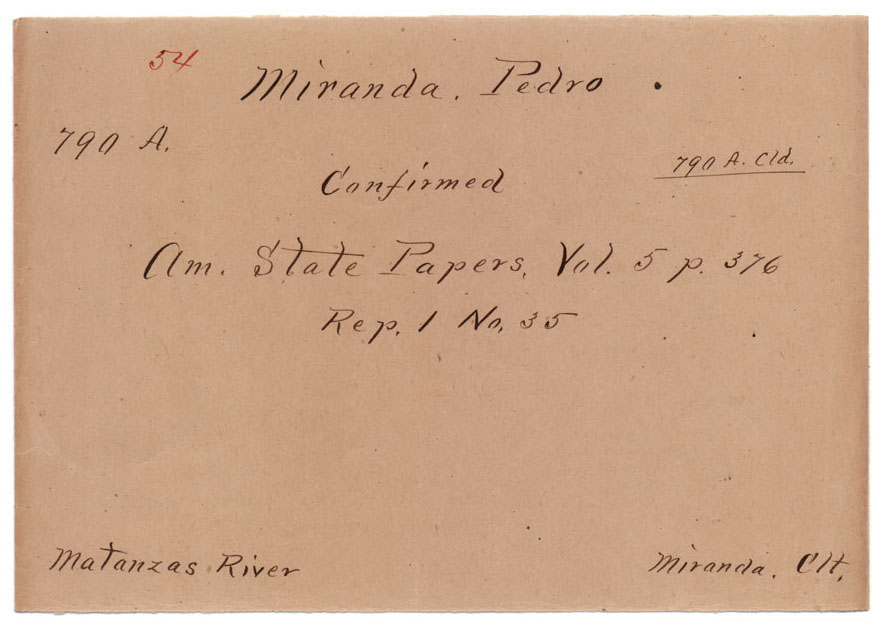 54
Miranda, Pedro.
790 A.
790 A. Cld.
Confirmed
Am. State Papers, Vol. 5 p. 376
Rep. 1 No. 35
Matanzas River
Miranda. Clt.